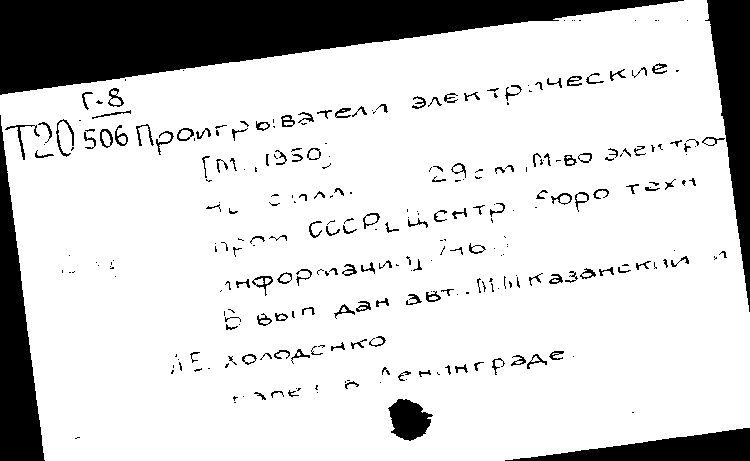 Г-8
Т20 506 Проигрыватели электрические.
[М., 1950]
29 М-во электро-
пром СССР. Центр. бюро техн
информации.
В вып дан авт.. М.М Казанский и
А.Е. Холоденко
в Ленинграде.